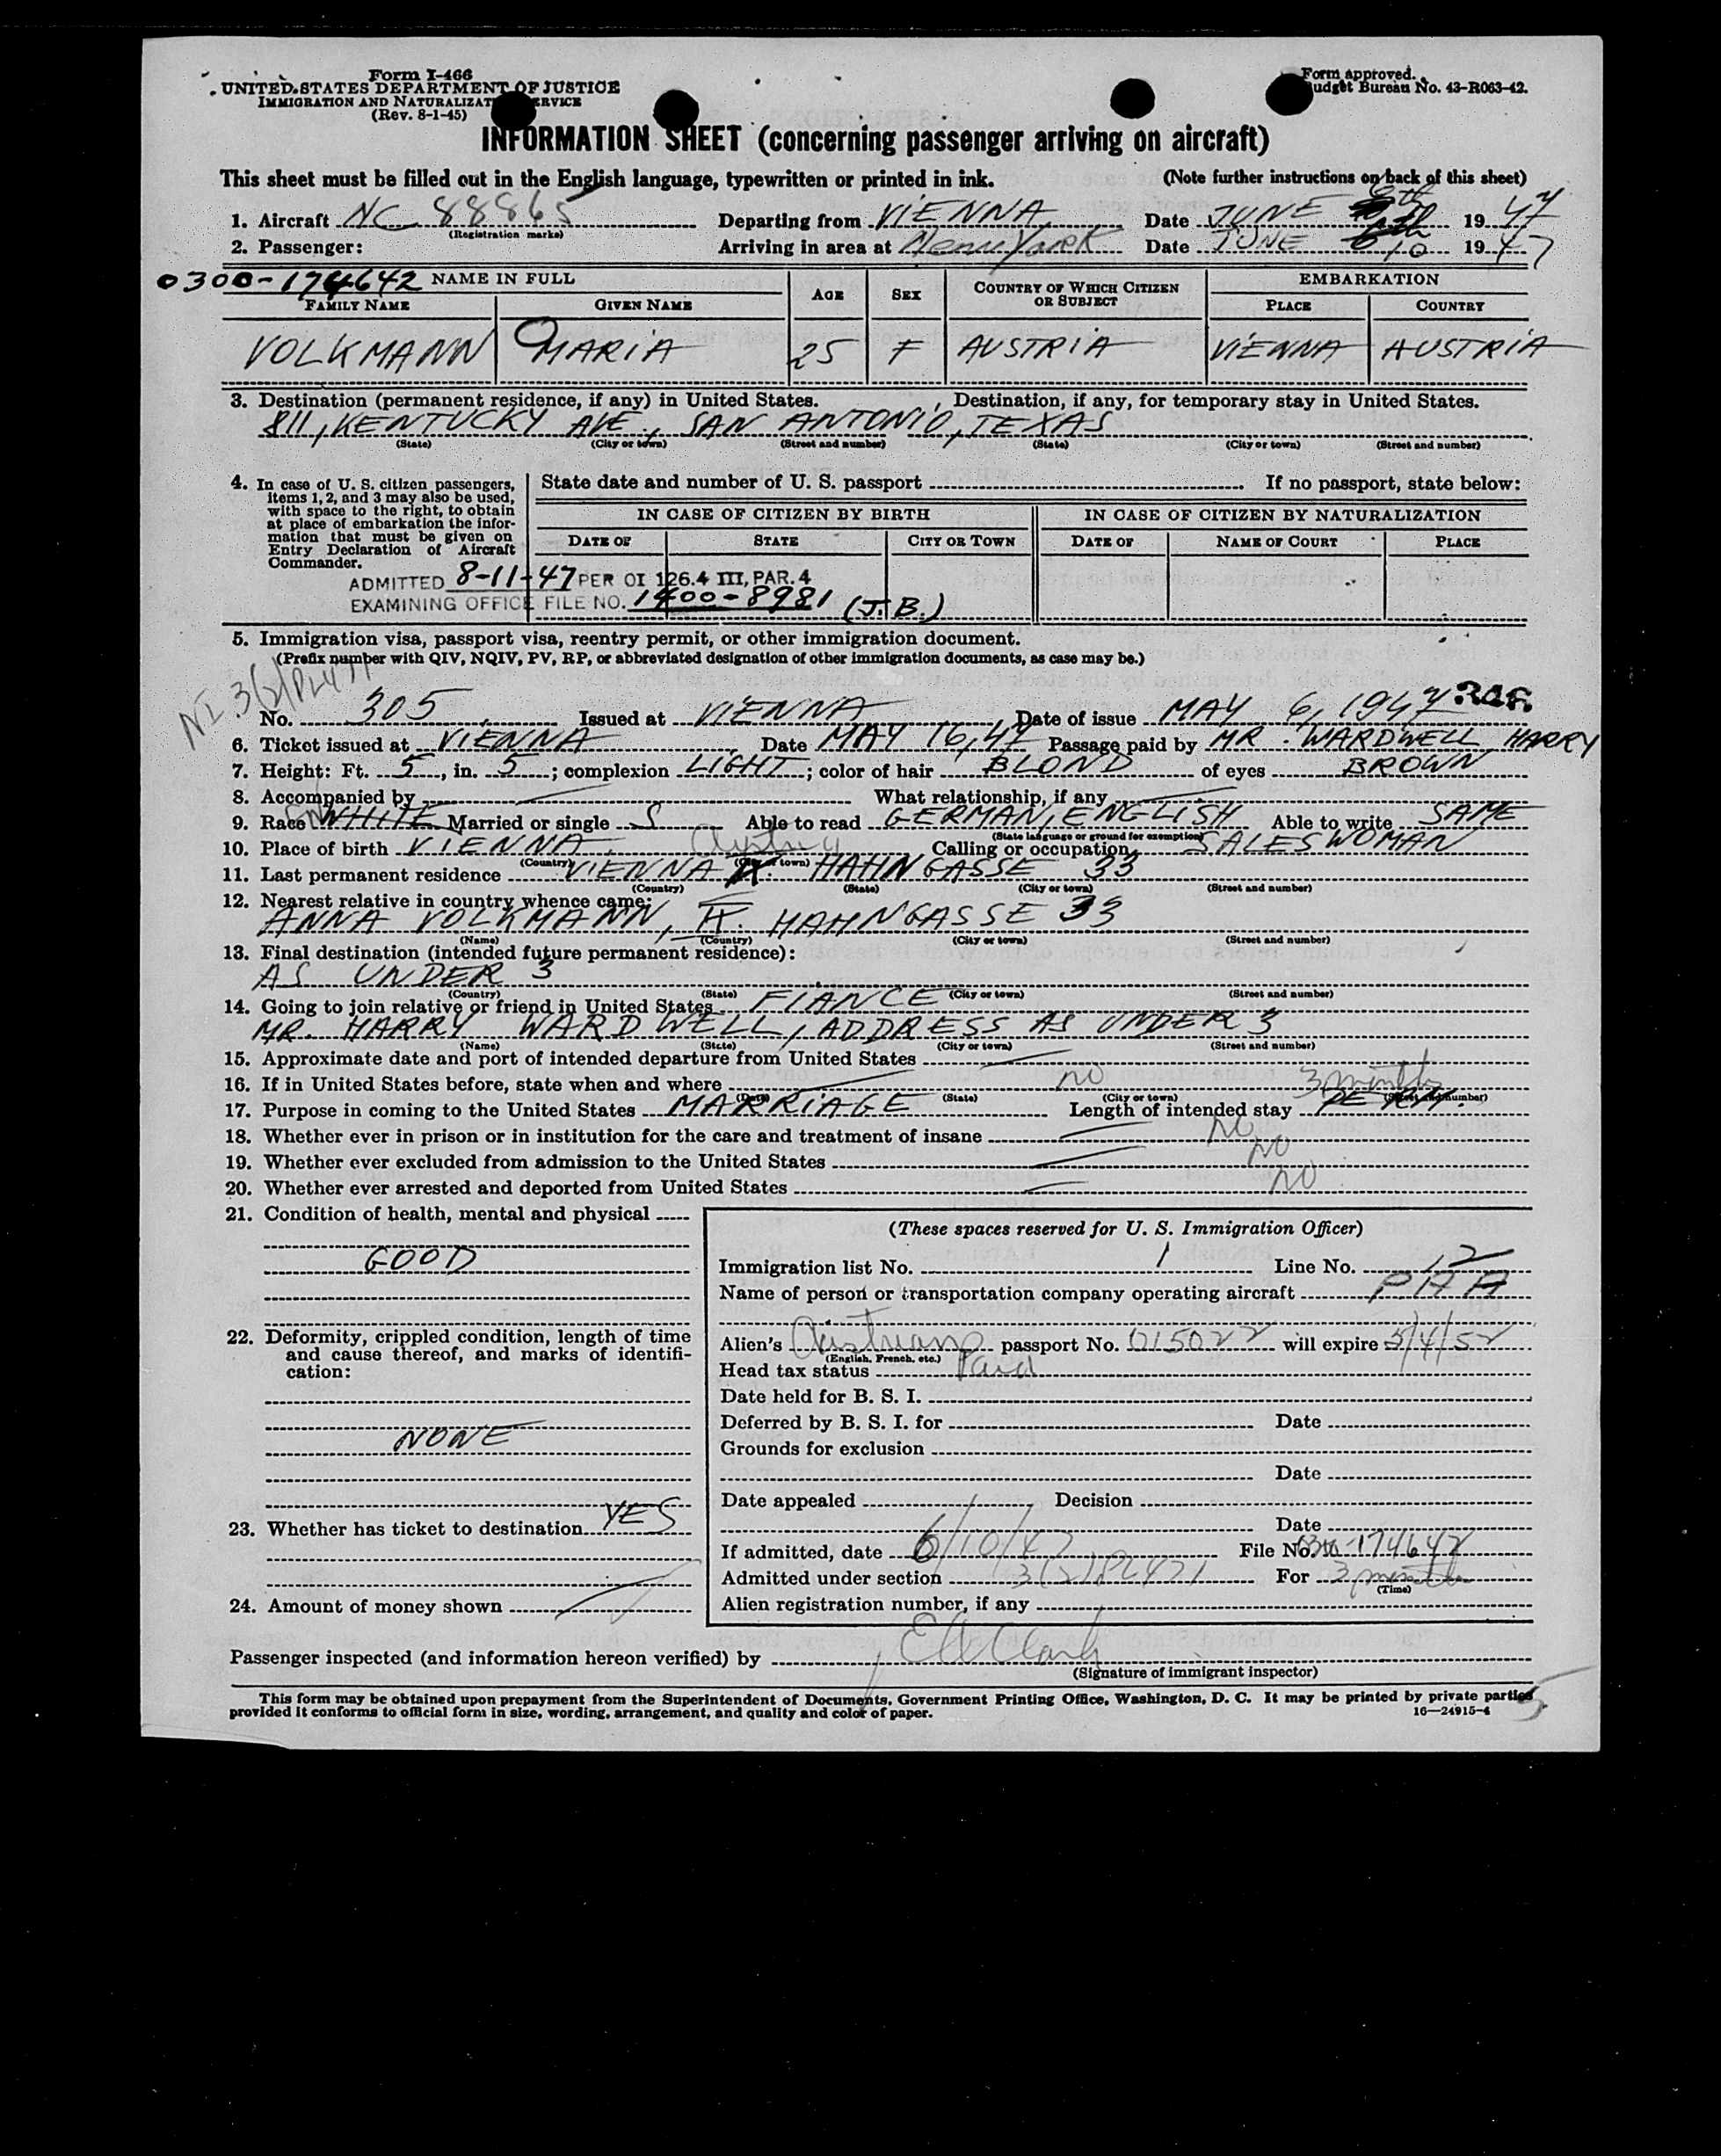 Form I-466
UNITED STATES DEPARTMENT OF JUSTICE
IMMIGRATION AND NATURALIZATI ERVICE
(Rev. 8-1-45)
Form approved.
udget Bureau No. 43-R063-42.
INFORMATION SHEET (concerning passenger arriving on aircraft)
This sheet must be filled out in the English language, typewritten or printed in ink. (Note further instructions on back of this sheet)
1. Aircraft NC 88865 Departing from VIENNA Date JUNE 19 47
(Registration marks)
2. Passenger: Arriving in area at New York Date JUNE 10 19 47
0300-174642 NAME IN FULL AGE SEX COUNTRY OF WHICH CITIZEN OR SUBJECT EMBARKATION
FAMILY NAME GIVEN NAME PLACE COUNTRY
VOLKMANN MARIA 25 F AUSTRIA VIENNA AUSTRIA
3. Destination (permanent residence, if any) in United States. Destination, if any, for temporary stay in United States.
811, KENTUCKY AVE., SAN ANTONIO, TEXAS
(State) (City or town) (Street and number) (State) (City or town) (Street and number)
4. In case of U. S. citizen passengers, items 1, 2, and 3 may also be used, with space to the right, to obtain at place of embarkation the information that must be given on Entry Declaration of Aircraft Commander.
State date and number of U. S. passport If no passport, state below:
IN CASE OF CITIZEN BY BIRTH IN CASE OF CITIZEN BY NATURALIZATION
DATE OF STATE CITY OR TOWN DATE OF NAME OF COURT PLACE
ADMITTED 8-11-47 PER OI 126.4 III, PAR. 4
EXAMINING OFFICE FILE NO. 1400-8981 (J.B.)
5. Immigration visa, passport visa, reentry permit, or other immigration document.
(Prefix number with QIV, NQIV, PV, RP, or abbreviated designation of other immigration documents, as case may be.)
NI 3(2)PL471
No. 305 Issued at VIENNA, Date of issue MAY 6, 1947
6. Ticket issued at VIENNA Date MAY 16, 47 Passage paid by MR. WARDWELL HARRY
7. Height: Ft. 5, in. 5; complexion LIGHT; color of hair BLOND of eyes BROWN
8. Accompanied by — What relationship, if any —
9. Race WHITE Married or single S Able to read GERMAN, ENGLISH Able to write SAME
(State language or ground for exemption)
10. Place of birth VIENNA Austria Calling or occupation SALESWOMAN
(Country) (City or town)
11. Last permanent residence VIENNA IX. HAHNGASSE 33
(Country) (State) (City or town) (Street and number)
12. Nearest relative in country whence came:
ANNA VOLKMANN, IX. HAHNGASSE 33
(Name) (Country) (City or town) (Street and number)
13. Final destination (intended future permanent residence):
AS UNDER 3
(Country) (State) (City or town) (Street and number)
14. Going to join relative or friend in United States FIANCE
MR. HARRY WARDWELL, ADDRESS AS UNDER 3
(Name) (State) (City or town) (Street and number)
15. Approximate date and port of intended departure from United States —
16. If in United States before, state when and where — no
(Date) (State) (City or town) (Street and number)
17. Purpose in coming to the United States MARRIAGE Length of intended stay PERM. 3 months
18. Whether ever in prison or in institution for the care and treatment of insane — NO
19. Whether ever excluded from admission to the United States — NO
20. Whether ever arrested and deported from United States — NO
21. Condition of health, mental and physical
GOOD
22. Deformity, crippled condition, length of time and cause thereof, and marks of identification:
NONE
23. Whether has ticket to destination YES
24. Amount of money shown —
(These spaces reserved for U. S. Immigration Officer)
Immigration list No. 1 Line No. 12
Name of person or transportation company operating aircraft PAA
Alien's Austrian passport No. 015022 will expire 5/4/52
(English, French, etc.)
Head tax status Paid
Date held for B. S. I.
Deferred by B. S. I. for Date
Grounds for exclusion
Date
Date appealed Decision
Date
If admitted, date 6/10/47 File No. 0300-174642
Admitted under section 3(2)PL471 For 3 months
(Time)
Alien registration number, if any
Passenger inspected (and information hereon verified) by E A Clark
(Signature of immigrant inspector)
This form may be obtained upon prepayment from the Superintendent of Documents, Government Printing Office, Washington, D. C. It may be printed by private parties
provided it conforms to official form in size, wording, arrangement, and quality and color of paper.
16—24915-4